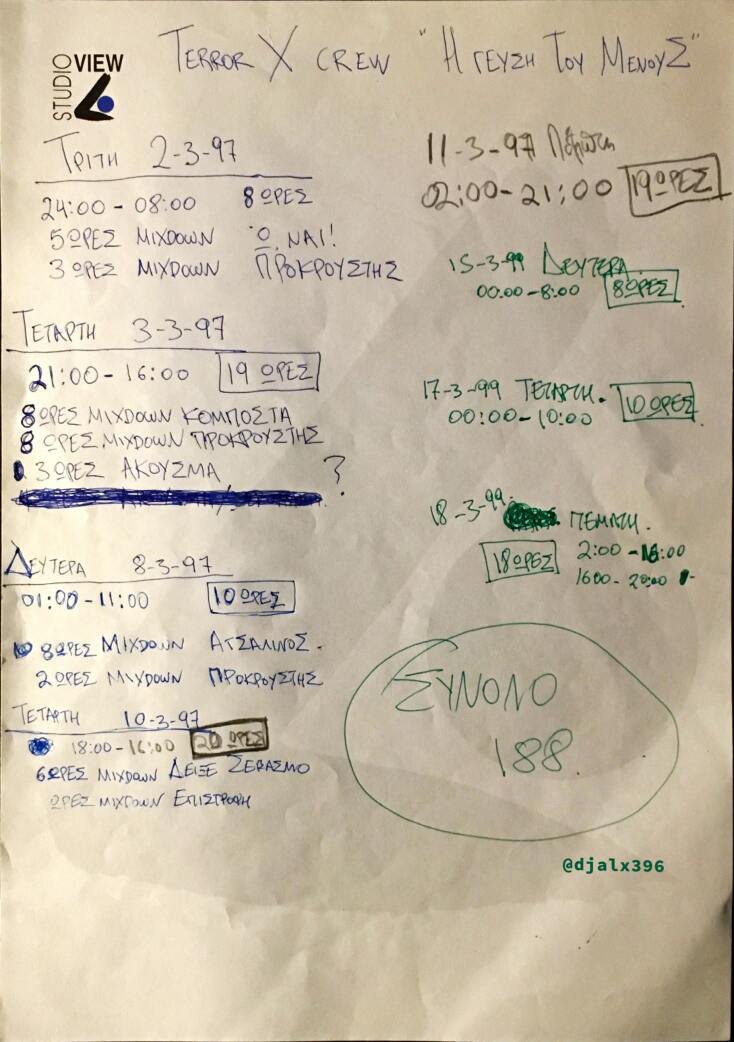 STUDIO VIEW
TERROR X CREW "Η ΓΕΥΣΗ ΤΟΥ ΜΕΝΟΥΣ"
ΤΡΙΤΗ 2-3-97
24:00 - 08:00 8 ΩΡΕΣ
5 ΩΡΕΣ MIXDOWN Ω, ΝΑΙ!
3 ΩΡΕΣ MIXDOWN ΠΡΟΚΡΟΥΣΤΗΣ
ΤΕΤΑΡΤΗ 3-3-97
21:00 - 16:00 19 ΩΡΕΣ
8 ΩΡΕΣ MIXDOWN ΚΟΜΠΟΣΤΑ
8 ΩΡΕΣ MIXDOWN ΠΡΟΚΡΟΥΣΤΗΣ
3 ΩΡΕΣ ΑΚΟΥΣΜΑ ?
ΔΕΥΤΕΡΑ 8-3-97
01:00 - 11:00 10 ΩΡΕΣ
8 ΩΡΕΣ MIXDOWN ΑΤΣΑΛΙΝΟΣ.
2 ΩΡΕΣ MIXDOWN ΠΡΟΚΡΟΥΣΤΗΣ
ΤΕΤΑΡΤΗ 10-3-97
18:00 - 16:00 20 ΩΡΕΣ
6 ΩΡΕΣ MIXDOWN ΔΕΙΞΕ ΣΕΒΑΣΜΟ
ΩΡΕΣ MIXDOWN ΕΠΙΣΤΡΟΦΗ
11-3-97 Πέμπτη
02:00 - 21:00 19 ΩΡΕΣ
15-3-99 ΔΕΥΤΕΡΑ
00:00 - 8:00 8 ΩΡΕΣ
17-3-99 ΤΕΤΑΡΤΗ. 10 ΩΡΕΣ
00:00 - 10:00
18-3-99 ΠΕΜΠΤΗ.
18 ΩΡΕΣ 2:00 - 16:00
1600 - 20:00
ΣΥΝΟΛΟ
188
@djalx396